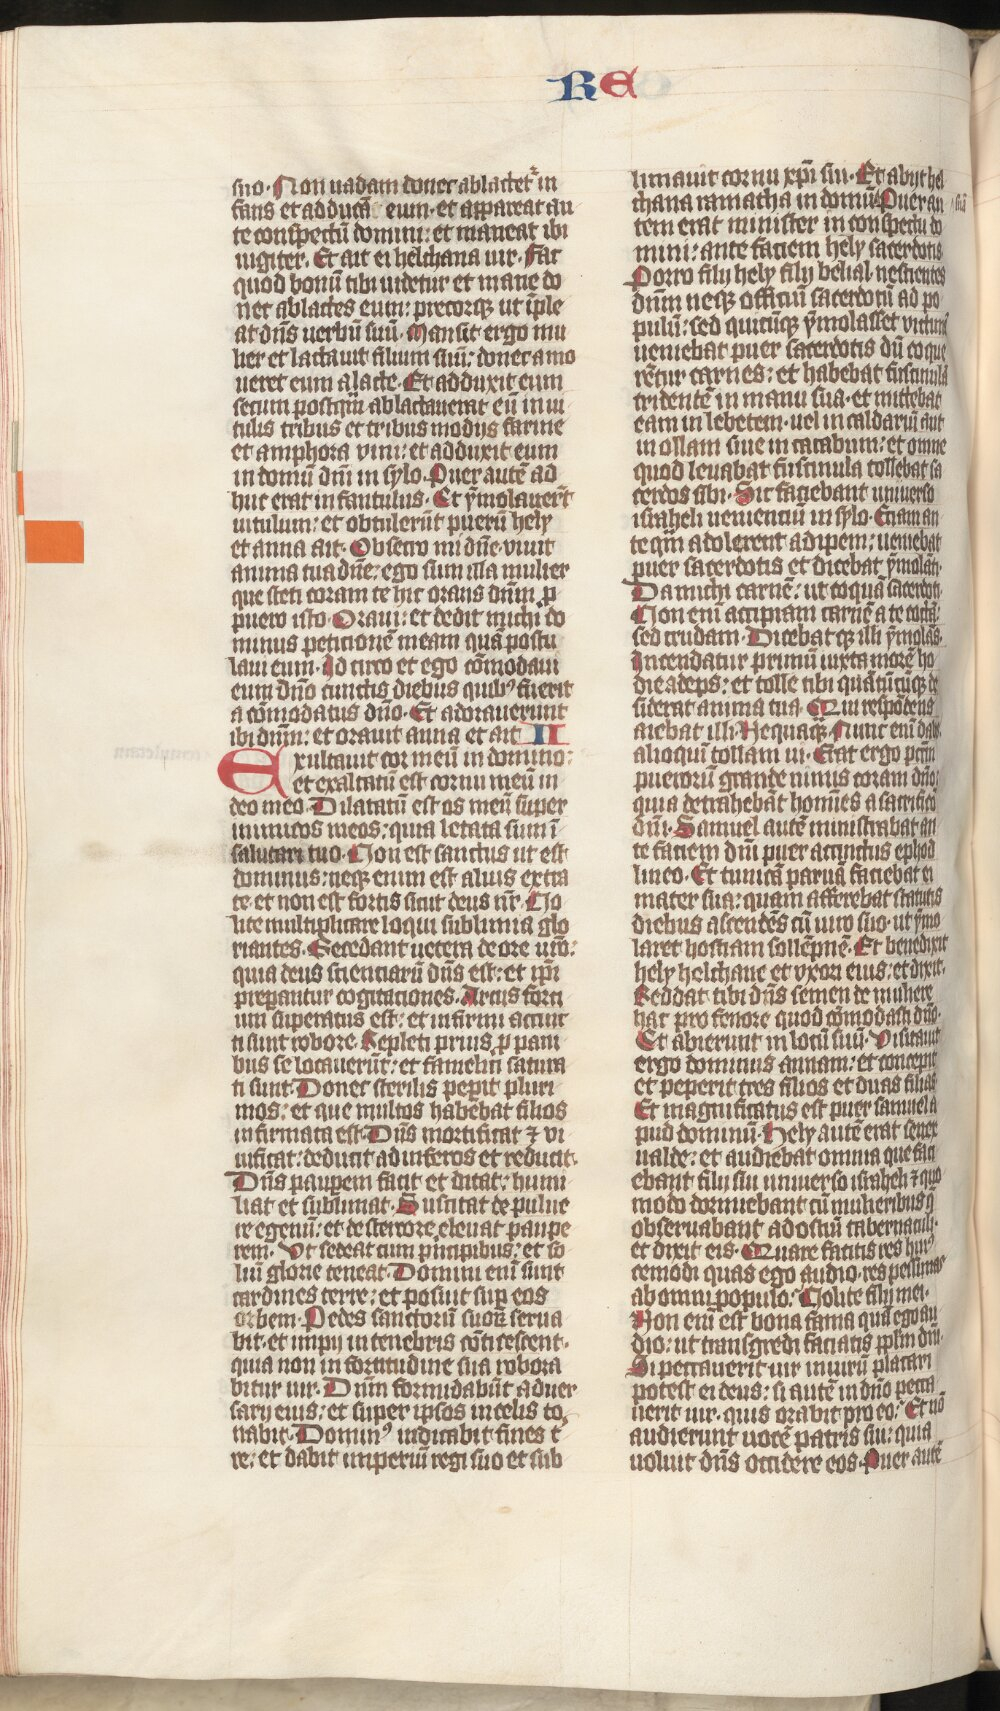 RE
suo. Non uadam donec ablactet᷑ in
fans et adducā eum. et appareat an
te conspectū domini: et maneat ibi
iugiter. Et ait ei helchana uir. Fac
quod bonū tibi uidetur et mane do
nec ablactes eum: precorqꝫ ut īple
at dn̄s uerbū suū. Mansit ergo mu
lier et lactauit filium suū: donec amo
ueret eum a lacte. Et adduxit eum
secum postqm̄ ablactauerat eū in ui
tulis tribus et tribus modijs farine
et amphora vini: et adduxit eum
in domū dn̄i in sylo. Puer autē ad
huc erat infantulus. Et ẏmolauerūt
uitulum: et obtulerūt puerū hely
et anna ait. Obsecro mi dn̄e. viuit
anima tua dn̄e: ego sum illa mulier
que steti coram te hic orans dn̄m. ꝑ
puero isto. Oraui: et dedit michi do
minus peticionē meam quā postu
laui eum. Id circo et ego cōmodaui
eum dn̄o cunctis diebus quibꝰ fuerit
a cōmodatus dn̄o. Et adorauerunt
ibi dn̄m: et orauit anna et ait II
Exultauit cor meū in domino:
et exaltatū est cornu meū in
deo meo. Dilatatū est os meū super
inimicos meos: quia letata sum ī
salutari tuo. Non est sanctus ut est
dominus: neqꝫ enim est alius extra
te. et non est fortis sicut deus nr̄. No
lite multiplicare loqui sublimia glo
riantes. Recedant uetera de ore urō:
quia deus scienciarū dn̄s est: et ip̄i
preparantur cogitaciones. Arcus forti
um superatus est: et infirmi accinc
ti sunt robore. Repleti prius ꝓ pani
bus se locauerūt: et famelici satura
ti sunt. Donec sterilis peperit pluri
mos: et que multos habebat filios
infirmata est. Dn̄s mortificat ⁊ vi
uificat: deducit ad inferos et reducit.
Dn̄s pauꝑem facit et ditat: humi
liat et subliuat. Suscitat de puluere
re egenū: et de stercore eleuat paupe
rem. Vt sedeat cum principibus: et so
liū glorie teneat. Domini enī sunt
cardines terre: et posuit suꝑ eos
orbem. Pedes sanctorū suoꝝ serua
bit. et impij in tenebris cōticescent.
quia non in fortitudine sua robora
bitur uir. Dn̄m formidabūt aduer
sarij eius: et super ipsos in celis to
nabit. Dominꝰ iudicabit fines t
re: et dabit imperiū regi suo et sub
limauit cornu xp̄i sui. Et abijt hel
chana ramatha in domū suā. Puer au
tem erat minister in conspectu do
mini: ante faciem hely sacerdotis
Porro filij hely filij belial. nescientes
dn̄m neqꝫ officiū sacerdotū ad po
pulū: sed quicūqꝫ ẏmolasset victimā
ueniebat puer sacerdotis dū coque
rētur carnes: et habebat fuscinulā
tridentē in manu sua. et mittebat
eam in lebetem. uel in caldariū aut
in ollam siue in cacabum: et omne
quod leuabat fuscinula tollebat sa
cerdos sibi. Sic faciebant uniuerso
israheli uenienciū in sylo. Etiam an
te qm̄ adolerent adipem: ueniebat
puer sacerdotis et dicebat ẏmolāti.
Da michi carnē: ut coquā sacerdoti.
Non enī accipiam carnē a te coctā:
sed crudam. Dicebat qꝫ illi ẏmolās.
Incendatur primū iuxta morē ho
die adeps: et tolle tibi quātūcūqꝫ de
siderat anima tua. Qui respōdens
aiebat illi. Nequaqꝫ. Nunc enī dabis
alioqui tollam ui. Erat ergo pctm̄
puerorū grande nimis coram dn̄o:
quia detrahebāt homīes a sacrificio
dn̄i. Samuel autē ministrabat an
te faciem dn̄i puer accinctus ephod
lineo. Et tunicā paruā faciebat ei
mater sua: quam afferebat statutis
diebus ascendēs cū uiro suo. ut ẏmo
laret hostiam sollēpnē. Et benedixit
hely helchane et vxori eius: et dixit.
Reddat tibi dn̄s semen de muliere
hac pro fenore quod cōmodasti dn̄o.
Et abierunt in locū suū. Visitauit
ergo dominus annam: et concepit
et peperit tres filios et duas filias
Et magnificatus est puer samuel a
pud dominū. Hely autē erat senex
ualde: et audiebat omnia que faci
ebant filij sui uniuerso israheli ⁊ quo
modo dormiebant cū mulieribus q̄
obseruabant ad ostiū tabernaculi.
et dixit eis. Quare facitis res huiꝰ
cemodi quas ego audio. res pessimas
ab omni populo. Nolite filij mei.
Non enī est bona fama quā ego au
dio: ut transgredi faciatis ppl̄m dn̄i.
Si peccauerit uir in uirū placari
potest ei deus: si autē in dn̄o pecca
uerit uir. quis orabit pro eo. Et nō
audierunt uocē patris sui: quia
uoluit dn̄s occidere eos. Puer autē